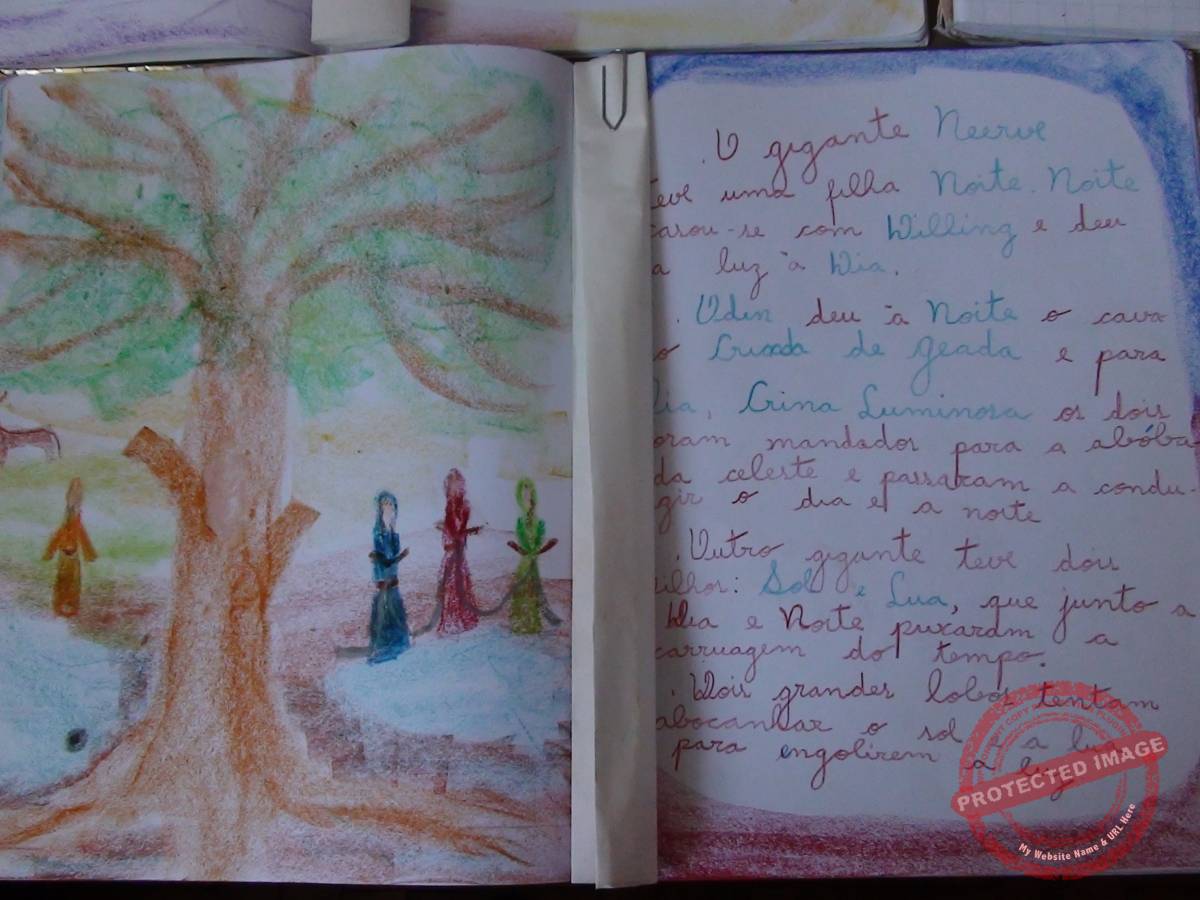 . O gigante Neerve
teve uma filha Noite. Noite
casou-se com Dilling e deu
a luz à Dia.
. Odin deu à Noite o cava
o de geada e para
Dia, Crina Luminosa os dois
oram mandados para a abóba
da celeste e passaram a condu-
gir o dia e a noite
. Outro gigante teve dois
ilhos: Sol e Lua, que junto a
Dia e Noite puxaram a
carruagem do tempo.
. Dois grandes lobos tentam
abocanhar o sol a lua
para engolirem a luz
PROTECTED IMAGE
My Website Name & URL Here